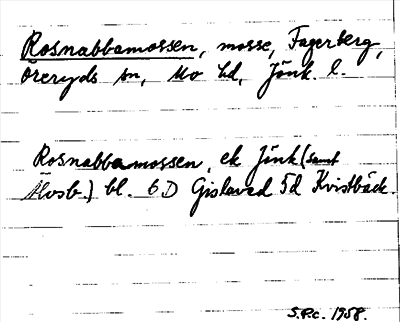 Rosnabbamossen, mosse, Fagerberg,
Öreryds sn, Mo hd, Jönk. l.
Rosnabbamossen, ek Jönk (samt
Älvsb.) bl. 6D Gislaved 5d Kvistbäck.
S.P.c. 1958.